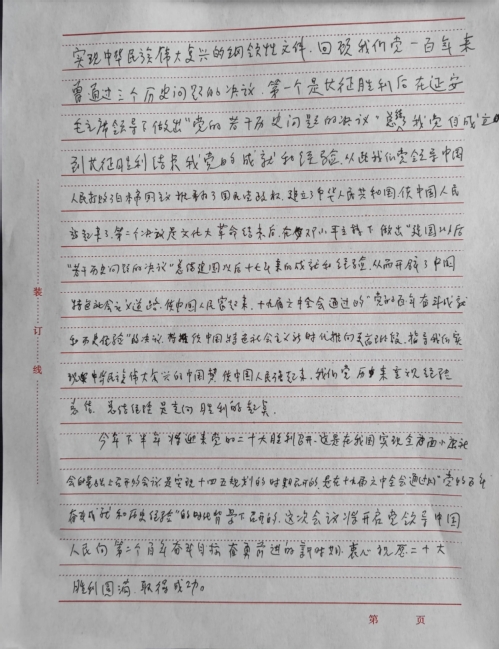 实现中华民族伟大复兴的纲领性文件。回顾我们党一百年来
曾通过三个历史问题的决议，第一个是长征胜利后在延安
毛主席领导下做出"党的若干历史问题的决议"总结我党自成立
到长征胜利结束我党的成就和经验，从此我们党领导中国
人民打败日本帝国主义推翻了国民党政权，建立了中华人民共和国，使中国人民
站起来了，第二个决议是文化大革命结束后在邓小平主持下做出"建国以后
"若干历史问题的决议"总结建国以后十七年来的成就和经验，从而开辟了中国
特色社会主义道路，使中国人民富起来，十九届六中全会通过的"党的百年奋斗成就
和历史经验"的决议，将使中国特色社会主义新时代推向更高阶段，指导我们实
现中华民族伟大复兴的中国梦使中国人民强起来，我们党历来重视经验
总结，总结经验是走向胜利的起点。
今年下半年将迎来党的二十大胜利召开，这是在我国实现全面小康社
会的基础上召开的会议是实现十四五规划的时期召开的，是在十九届六中全会通过的"党的百年
奋斗成就和历史经验"的时代背景下召开的，这次会议将开启党领导中国
人民向第二个百年奋斗目标奋勇前进的新时期，衷心祝愿二十大
胜利圆满，取得成功。
装
订
线
第 页